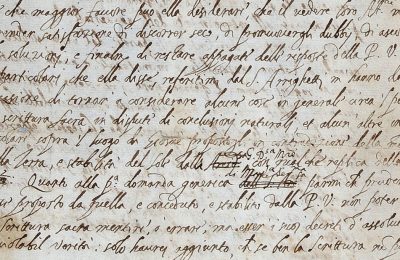 che maggior favore può ella desiderare, che il vedere loro
prender satisfazione di discorrer seco, di promuovergli dubbi, di
soluzioni, e finalm. di restare appagati delle risposte della P. V.
particolari che ella disse referitimi dal S. Arrighetti, mi hanno
di tornar a considerare alcune cose in generale circa
scrittura sacra in dispute di conclusioni naturali, et alcun' altre in
sopra il luogo di Giosue propostoli in contradizione della
la Terra, e stabilità del Sol dalla con qualche replica della
Quanto alla p.ª domanda generica di parmi che
proposto da quella e conceduto, e stabilito dalla P. V. non poter
scrittura sacra mentire, o errare, ma esser i suoi decreti d'assolu
violabil verità: solo haurei aggiunto, che se ben la scrittura no